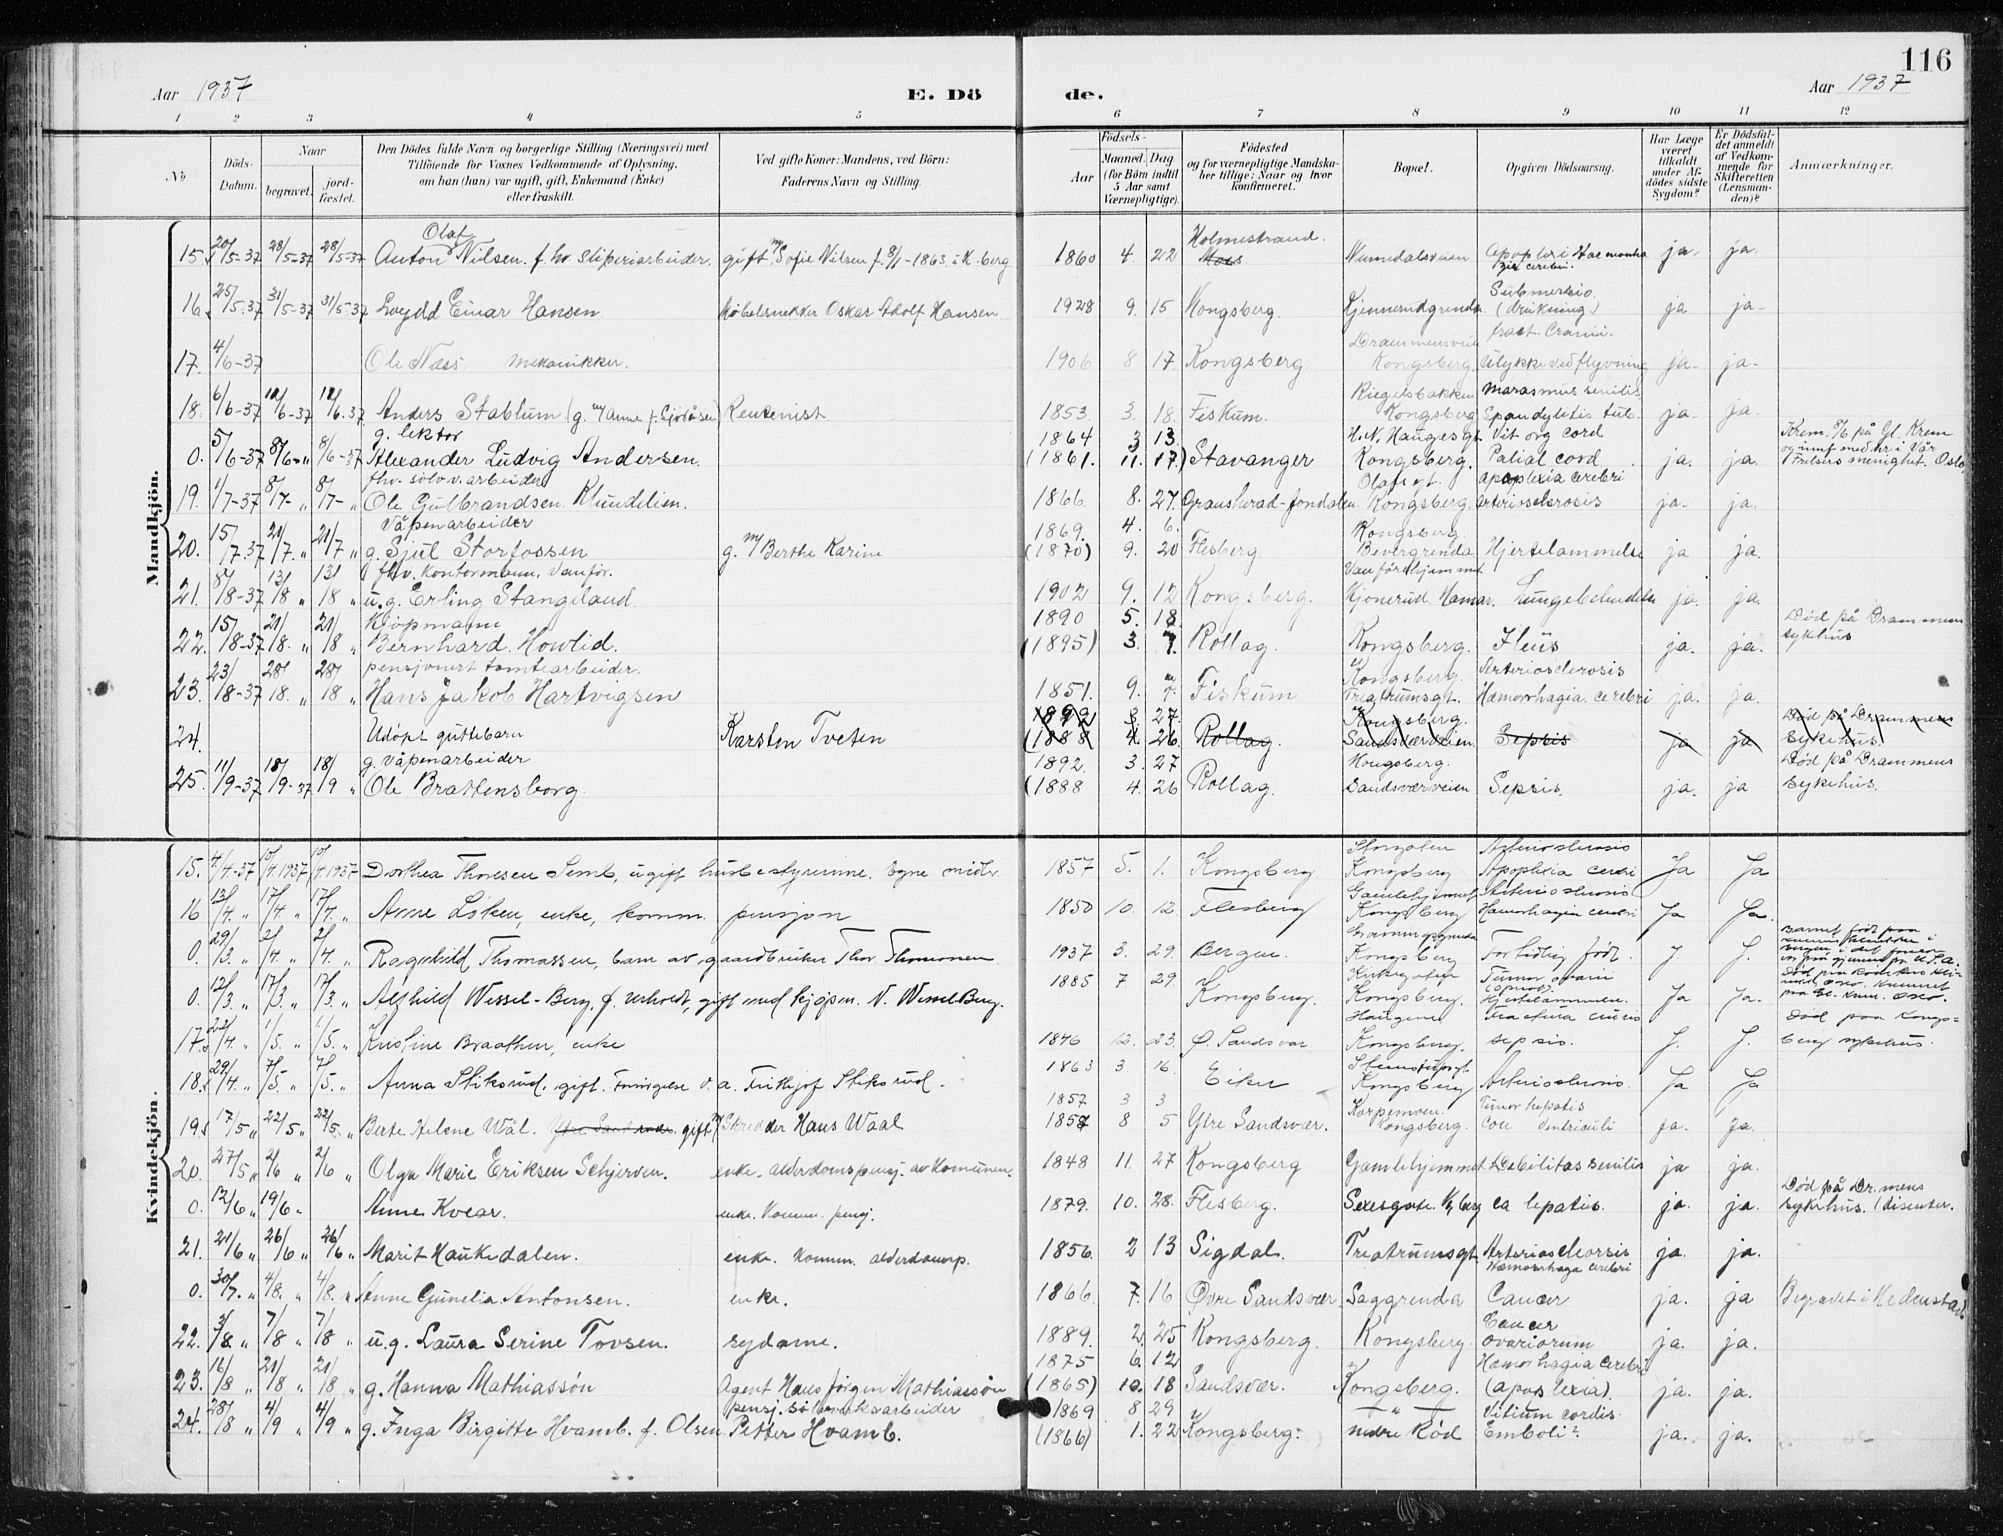 116
Aar 1937
E. Dö
de.
Aar 1937
1 2 3 4 5 6 7 8 9 10 11 12
No.
Döds-Datum.
Naar
begravet.
jord-fæstet.
Den Dödes fulde Navn og borgerlige Stilling (Næringsvei) med
Tilföiende for Voxnes Vedkommende af Oplysning,
om han (hun) var ugift, gift, Enkemand (Enke)
eller fraskilt.
Ved gifte Koner: Mandens, ved Börn:
Faderens Navn og Stilling.
Födsels-
Aar
Maaned. Dag
(for Börn indtil
5 Aar samt
Værnepligtige).
Födested
og for værnepligtige Mandska-
ber tillige: Naar og hvor
konfirmeret.
Bopæl.
Opgiven Dödsaarsag.
Har Læge
været
tilkaldt
under Af-
dödes sidste
Sygdom?
Er Dödsfal-
det anmeldt
af Vedkom-
mende for
Skifteretten
(Lensman-
den)?
Anmærkninger.
Mandkjön.
15. 20/5-37 28/5-37 28/5-37 Anton Olaf Nilsen. f. hv. sliperiarbeider. gift m/ Sofie Nilsen f. 8/1-1863 i K.berg 1860 4. 22 Holmestrand. Moss Numedalsveien Apoplexi cerebri. ja. ja.
16. 25/5-37 31/5-37 31/5-37 Einar Hansen Møbelsnekker Oskar Adolf Hansen 1928 9. 15 Kongsberg. Kjennerudgrenda Submersio (drukning) ja ja-
17. 4/6-37 Ole Næss mekanikker. 1906 8 17 Kongsberg Drammensveien Kongsberg fract. Cranii. Ulykke ved flyvning ja- ja-
18. 6/6-37 12/6-37 12/6-37 Anders Stablum (g. m/ Anne f. ) Rentenist 1853 3. 18. Fiskum. Kongsberg Marasmus senilis Spondylitis tub. ja- ja-
0. 5/6-37 8/6-" 8/6-37 g. lektor Alexander Ludvig Andersen. 1864 3 13. (1861. 11. 17.) Stavanger H. N. Hauges gt. Kongsberg. Vit org cord Palial cord ja. ja. Krem. 8/6 på Gl. Krem menighet. Oslo
19. 1/7-37 8/7- " 8/7- " fhv. sølvv. arbeider Ole Gulbrandsen Klundelien. 1866 8. 27. Gransherad- Olafs gt. Kongsberg. Apoplexia cerebri Arteriosclerosis ja. ja.
20. 15/7.37 21/7. " 21/7 " Våpenarbeider g. Sjul Storfossen g. m/ Berthe Karine 1869. 4. 6. (1870) 9. 20 Flesberg Kongsberg. Bevergrenda Hjertelammelse ja ja.
21. 8/8-37 13/8 " 13/8 " fhv. kontormann, vanför. u.g. Erling Stangeland 1902 9. 12 Kongsberg. Vanförehjemmet Hamar. Lungebetendelse ja. ja.
22. 15/8-37 21/8. " 21/8 " Kjöpmann Bernhard Howlid. 1890 5. 18. (1895) 3. 7. Rollag. Kongsberg. Ileus ja. ja. Död på Drammen sykhus
23. 23/8-37 28/8. " 28/8 " pensjonert tomtearbeider. Hans Jakob Hartvigsen 1851. 9. 7. Fiskum Kongsberg. Teatrumsgt. Arteriosclerosis Hæmorrhagia cerebri ja. ja.
24. Udöpt guttebarn Karsten Tveten 1892 3. 27. (1888 4. 26. Rollag. Kongsberg. Sandsværveien. Sepsis ja ja Död på Drammens Sykehus.
25. 11/9-37 18/9-37 18/9 " g. våpenarbeider Ole Brattensborg 1892. 3. 27 (1888 4. 26 Rollag. Kongsberg. Sandsværveien Sepsis. ja. ja Död på Drammens Sykehus.
Kvindekjön.
15. 4/4-37 10/4 1937 10/4 1937 Dorthea Thoresen Semb, ugift husbestyrerinne. Egne midler 1857 5. 1. Kongsberg Storgaten Kongsberg Arteriosclerosis Apoplexia cerebri Ja Ja
16 13/4. " 17/4 " 17/4. " Anne Løken, enke, komm. pensjon 1850 10. 12. Flesberg Gamlehjemmet Kongsberg Arteriosclerosis Hæmorrhagia cerebri Ja Ja.
0. 29/3. " 2/4 " 2/4. " Ragnhild Thomassen, barn av gaardbruker Thor Thomassen 1937 3. 29. Bergen. Kongsberg For tidlig född. J. J. Barnet född paa
0. 12/3. " 17/3. " 17/3. " Alfhild Wessel-Berg, f. , gift med kjøpm. N. Wessel Berg. 1885 7. 29. Kongsberg. Kirkegaten Kongsberg. Tumor ovarii (operert). Hjertelammelse. Ja Ja. Död paa Oslo.
17. 22/4. " 1/5. " 1/5. " Kristine Braathen, enke 1846 12. 23. Ö. Sandsvær Haugene Kongsberg. Fractura cruris sepsis. J. J. Död paa Kongs=berg sykehus.
18. 29/4. " 7/5 " 7/5. " Anna Stiksrud. gift. Forsörgelse v. a. Frithjof Stiksrud. 1863 3 16. Eiker Kongsberg Arteriosclerosis. Ja Ja
19. 17/5 " 22/5 " 22/5. " Berte Helene Wål. gift m/ Skredder Hans Waal 1857 3 3 1857 8 5 Ytre Sandsvær. Korpemoen. Kongsberg. Tumor hepatis Coll ventriculi ja. ja.
20. 27/5 " 2/6 " 2/6 " Olga Marie Eriksen Schjerven. enke. alderdomspensj. av Komunen. 1848 11. 27 Kongsberg Gamlehjemmet Debilitas senilis ja ja.
0. 12/6 " 19/6 " Anne Kvear. enke. Komm. pensj. 1879. 10. 28. Flesberg. Sexesgate. K.berg ca hepatis. ja. ja. Död på Dr.mens sykehus. (disenter.
21. 21/6 " 26/6 " 26/6 " Marit Haukedalen. enke. komm. alderdomsp. 1856. 2 13 Sigdal. Teatrumsgt. Arteriosclerosis Hæmorrhaga cerebri ja. ja.
0. 30/7. " 4/8. " 4/8. " Anne Gunelia Antonsen. enke. 1866 7. 16 Övre Sandsvær Saggrenda Cancer ja. ja Begravet i Hedenstad.
22. 3/8. " 7/8 " 7/8 " u.g. Laura Serine Tovsen. sydame. 1889. 2. 25 Kongsberg. Kongsberg. Cancer ovariorum ja. ja.
23. 16/8 " 21/8 " 21/8 " g. Hanna Mathiassön Agent Hans Jörgen Mathiassön 1875 6. 12 (1865) 10. 18 Sandsvær. Kongsberg. Hæmorhagia cerebri (apoplexia). ja. ja.
24. 28/8 " 4/9 " 4/9 " g. Inga Birgitte Hvamb. f. Olsen pensj. sölvverksarbeider Petter Hvamb. 1869 8 29 (1866) 1. 22 Kongsberg. — " — nedre Kød Vitium cordis Emboli? ja. ja.